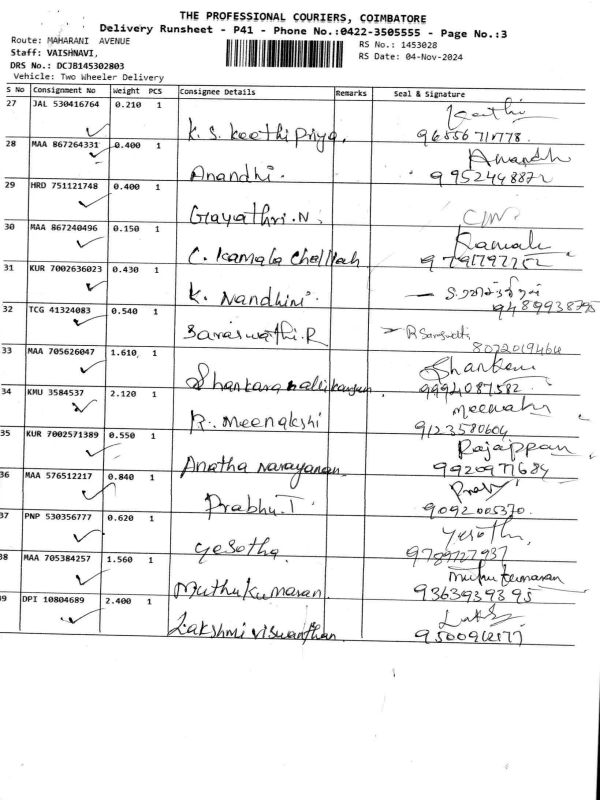 THE PROFESSIONAL COURIERS, COIMBATORE
Delivery Runsheet - P41 - Phone No.:0422-3505555 - Page No.:3
Route: MAHARANI AVENUE
RS No.: 1453028
Staff: VAISHNAVI,
RS Date: 04-Nov-2024
DRS No.: DCJB145302803
Vehicle: Two Wheeler Delivery
S No Consignment No Weight PCS Consignee Details Remarks Seal & Signature
27 JAL 530416764 0.210 1
K. S. Keethi Priya.
28 MAA 867264331 0.400 1
Anandhi. 9952448872
29 HRD 751121748 0.400 1
Gayathri.N.
30 MAA 867240496 0.150 1 Kamala
C. Kamala Chelllah
31 KUR 7002636023 0.430 1
K. Nandhini. 9489938795
32 TCG 41324083 0.540 1
Saraswathi.R 8072019464
33 MAA 705626047 1.610 1
Shankara 9994087582
34 KMU 3584537 2.120 1
R. Meenakshi 9123580604
35 KUR 7002571389 0.550 1 Rajappan
Anatha Narayanan 9920977684
36 MAA 576512217 0.840 1
Prabhu.T. 9092005370
37 PNP 530356777 0.620 1
Yesotha 9789727937
38 MAA 705384257 1.560 1 Muthukumaran
Muthukumaran 9363939395
39 DPI 10804689 2.400 1
Lakshmi Viswanthan